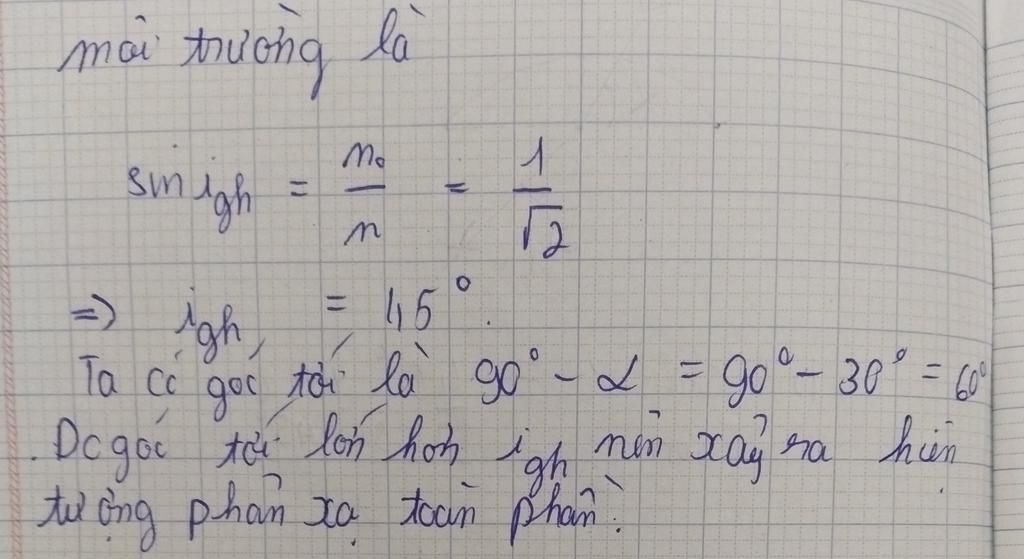 môi trường là
sin igh = n₀/n = 1/√2
=> igh = 45°.
Ta có góc tới là 90° - α = 90° - 30° = 60°
Dc góc tới lớn hơn igh nên xảy ra hiện
tượng phản xạ toàn phần.